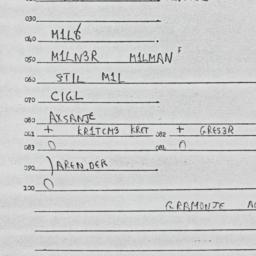 030
040 M1L6
050 M1LN3R M1LMAN
060 STIL M1L
070 CIGL
080 AXSANJE
081 + KR1TCM3 KRIT 082 + GRES3R
083 0 084 0
090 )AREN,DER
100 0
GRAMONJE